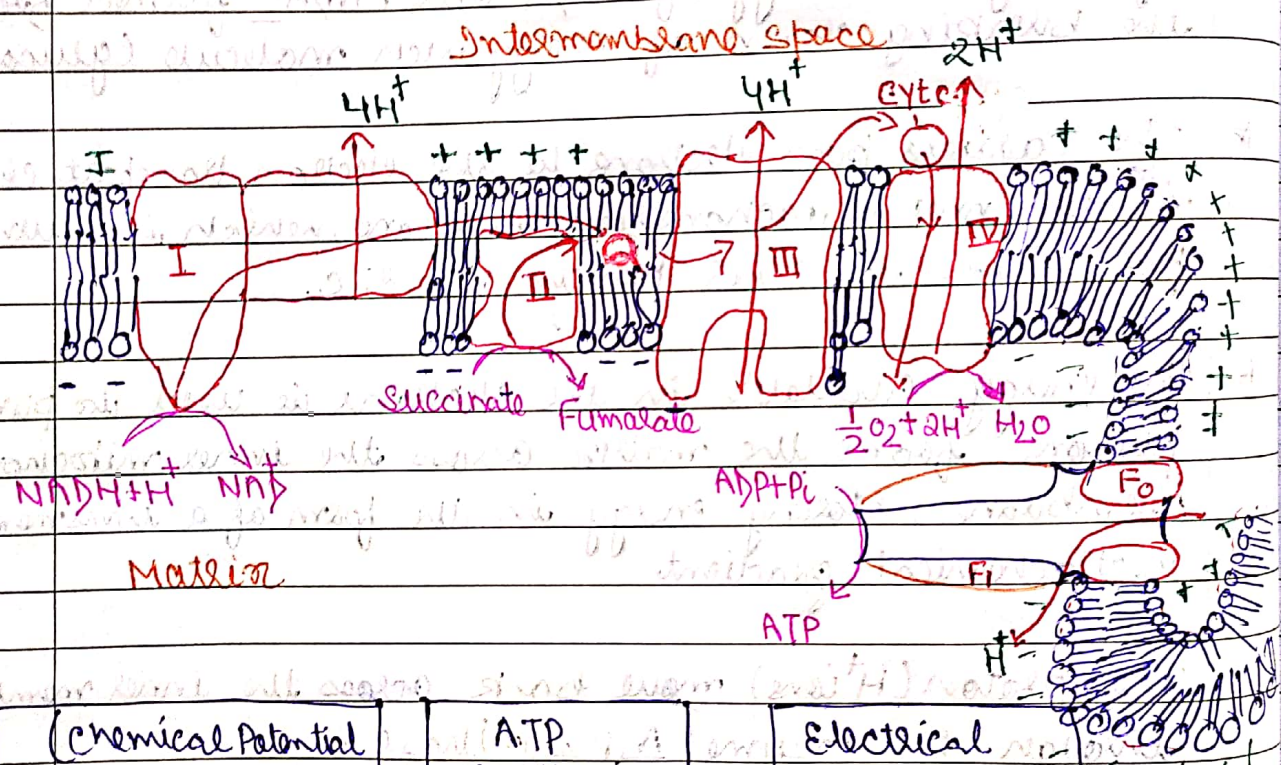 Intermembrane space
4H⁺ 4H⁺ 2H⁺
Cytc
I
+ + + + + + + +
I II Q III IV
- - - - - -
Succinate Fumarate ½O₂+2H⁺ H₂O
NADH+H⁺ NAD⁺ ADP+Pi F₀
Matrix F₁
ATP
H⁺
Chemical Potential ATP Electrical